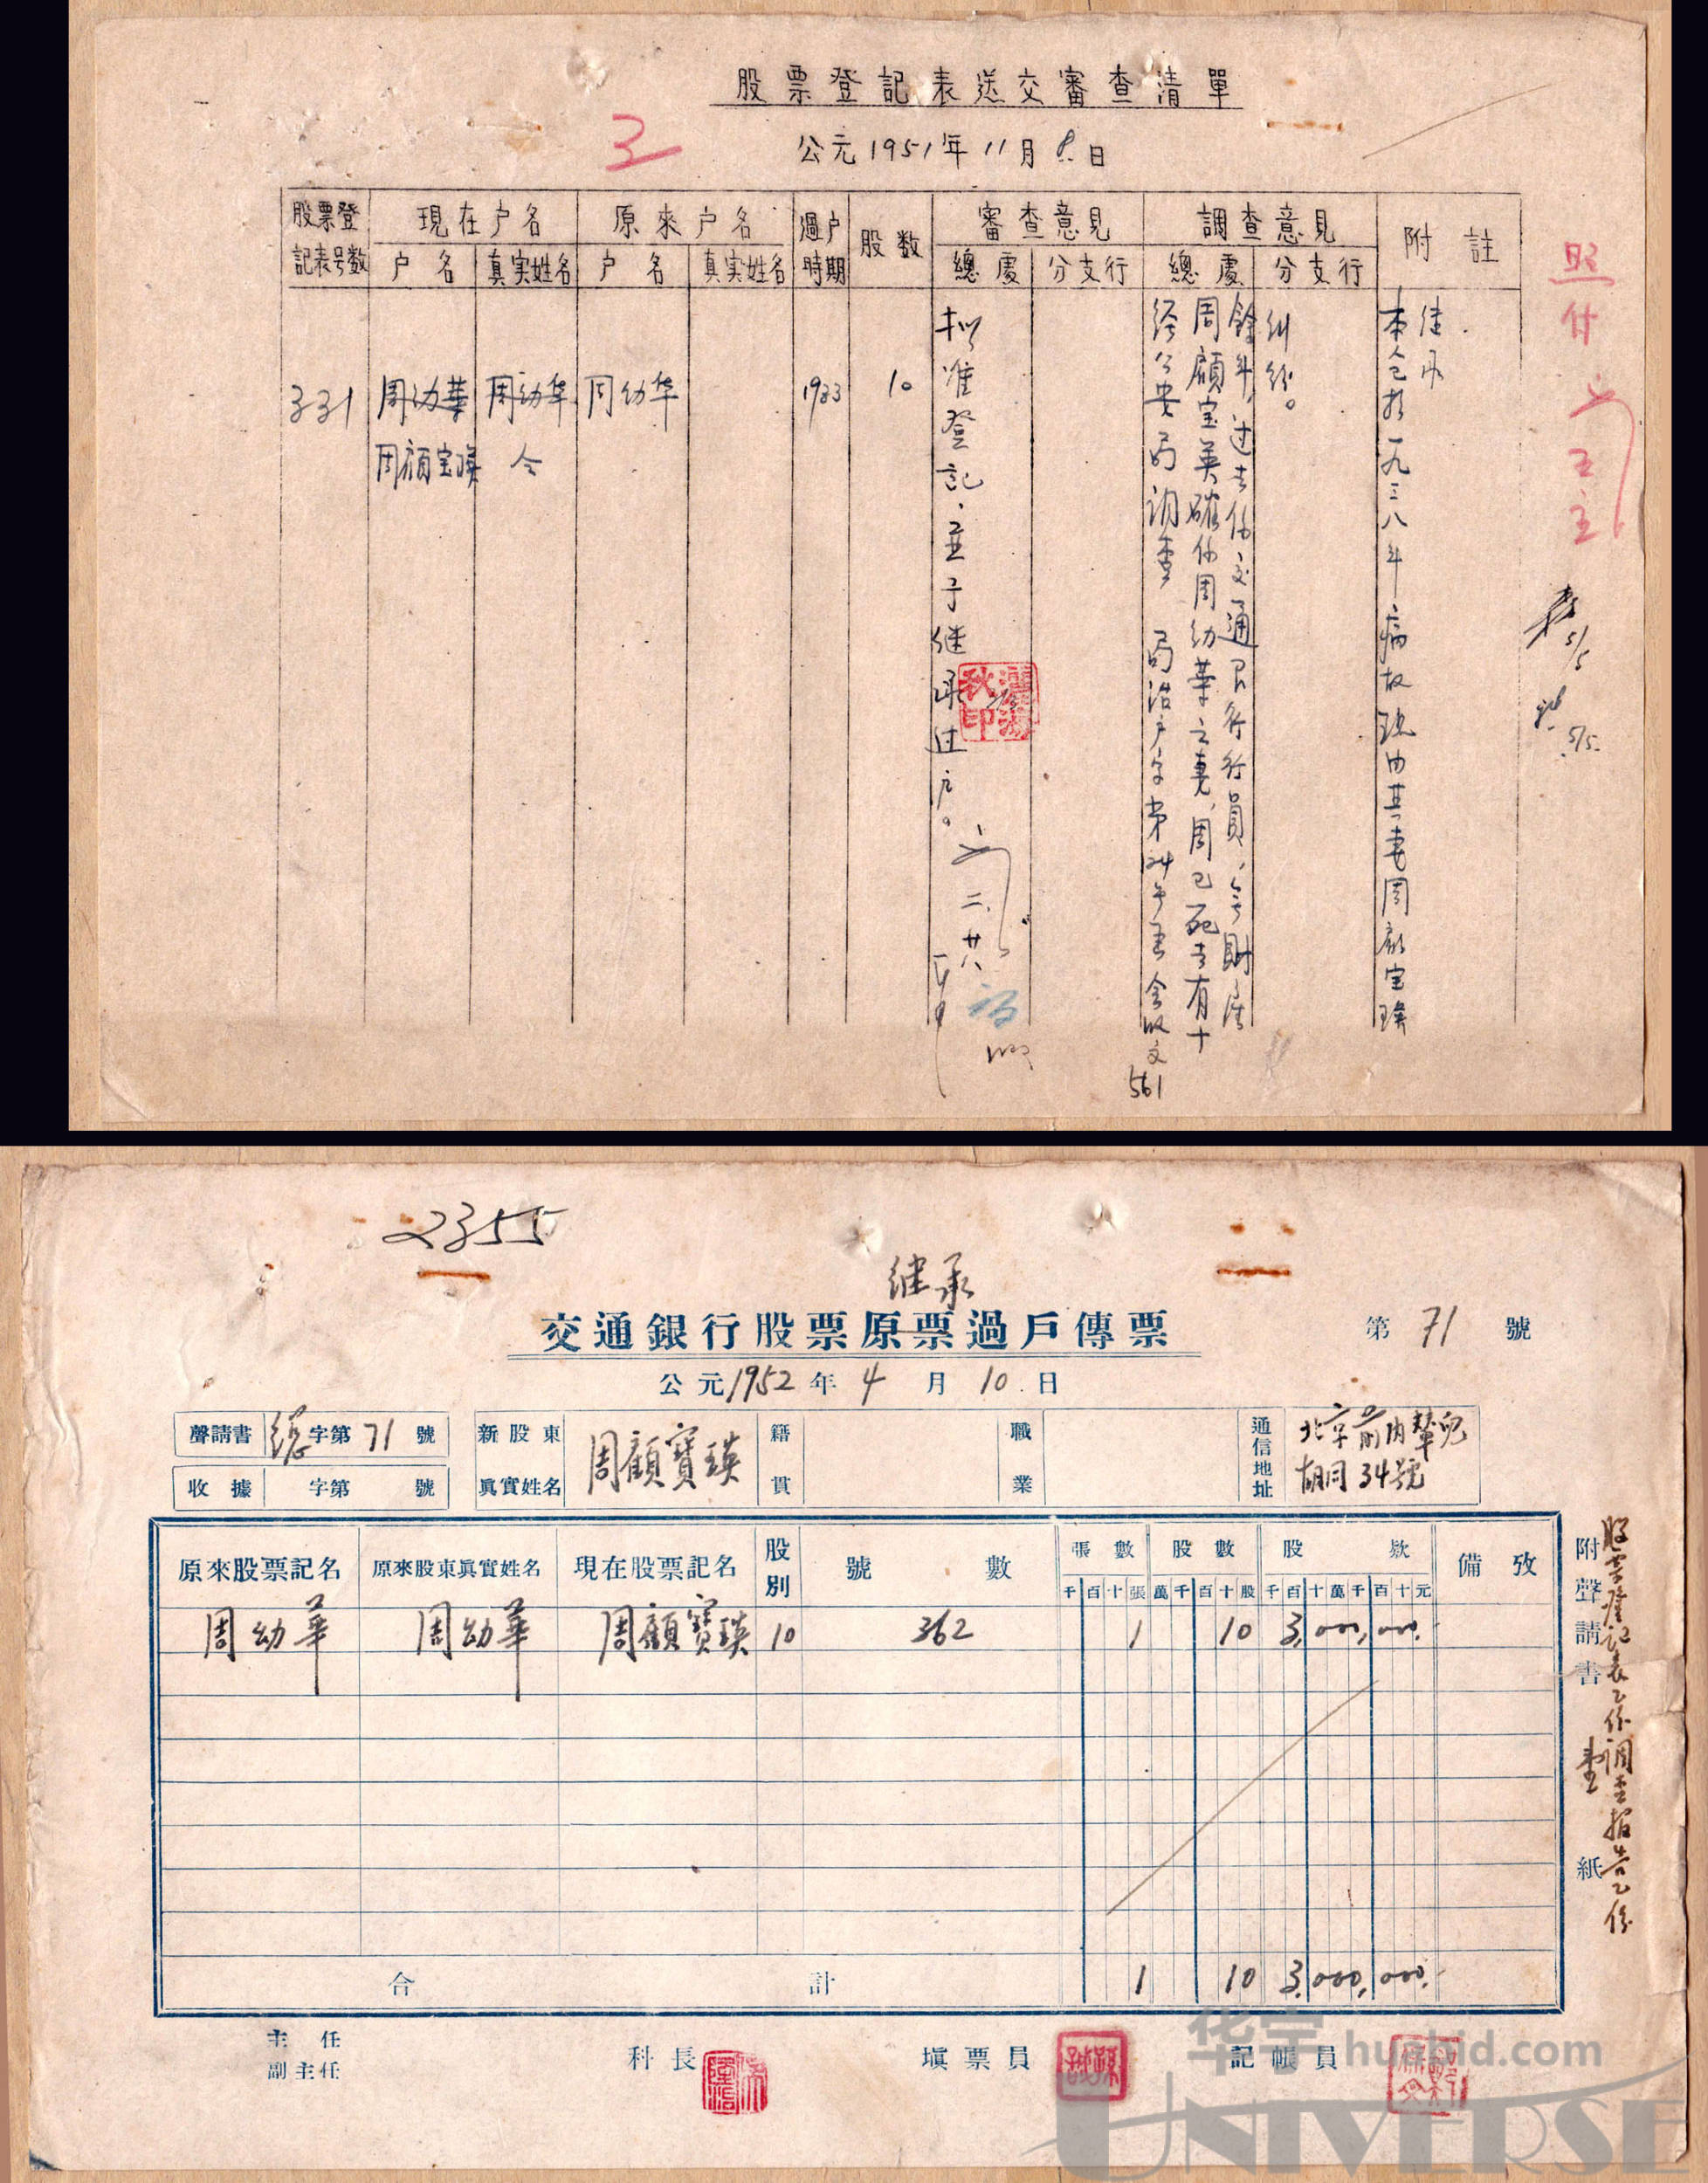 股票登記表送交審查清單
公元1951年11月8日
股票登記表号数 現在户名 原來户名 過户時期 股数 審查意見 調查意見 附註
户名 真实姓名 户名 真实姓名 總處 分支行 總處 分支行
331 周幼華 周幼华 周幼华 1933 10
周顧宝瑛 仝
拟准登記、並予继承过户。
二.廿八
经公安局调查 局治户字第24号
561
周顧宝英確係周幼華之妻,周已死去有十
餘年,过去係交通銀行行員,無財產
纠纷。
继承
本人已於一九三八年病故現由其妻周顧宝瑛
照付
5/5
5/5
2355
继承
交通銀行股票原票過戶傳票
第71號
公元1952年4月10日
聲請書 總字第71號
收據 字第 號
新股東真實姓名 周顧寶瑛
籍貫
職業
通信地址 北京前内輦兒胡同34號
原來股票記名 原來股東眞實姓名 現在股票記名 股別 號數 張數 股數 股款 備攷
千百十張 萬千百十股 千百十萬千百十元
周幼華 周幼華 周顧寶瑛 10 362 1 10 3,000,000.
合計 1 10 3,000,000.
附聲請書 紙
股票登記表乙份調查報告乙份
主任
副主任
科長
填票員
記帳員
华宇 huabid.com
UNIVERSE